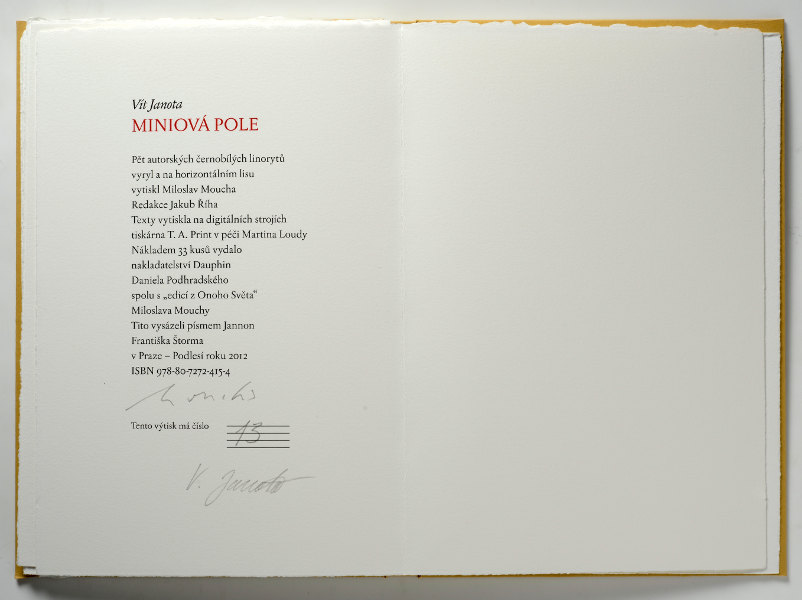 Vít Janota
MINIOVÁ POLE
Pět autorských černobílých linorytů
vyryl a na horizontálním lisu
vytiskl Miloslav Moucha
Redakce Jakub Říha
Texty vytiskla na digitálních strojích
tiskárna T. A. Print v péči Martina Loudy
Nákladem 33 kusů vydalo
nakladatelství Dauphin
Daniela Podhradského
spolu s „edicí z Onoho Světa“
Miloslava Mouchy
Tito vysázeli písmem Jannon
Františka Štorma
v Praze – Podlesí roku 2012
ISBN 978-80-7272-415-4
Tento výtisk má číslo 13
V. Janota